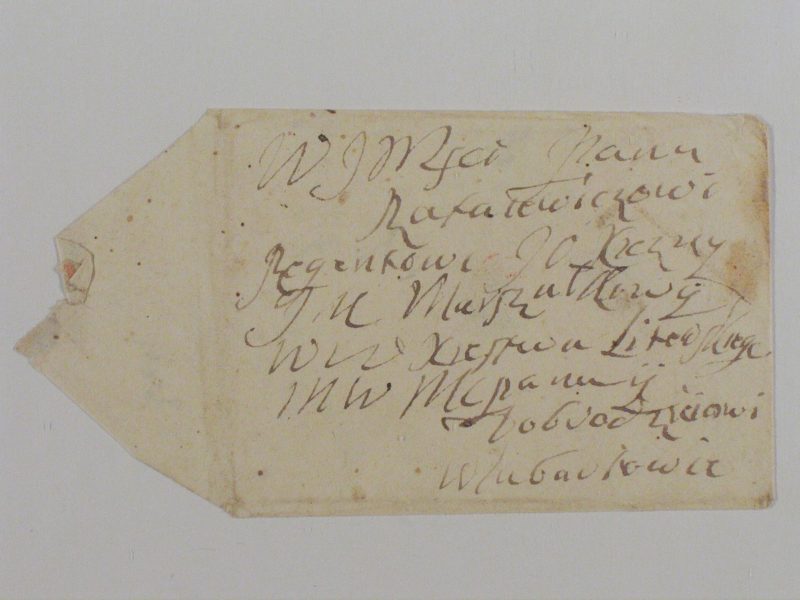 W J Mści Panu
Rafałowiczowi
Regentowi J O Xiężny
J M Marszałkowy
W W Xięstwa Litewskiego
M W Mcpanu y
Dobrodziejowi
w Lubartowie